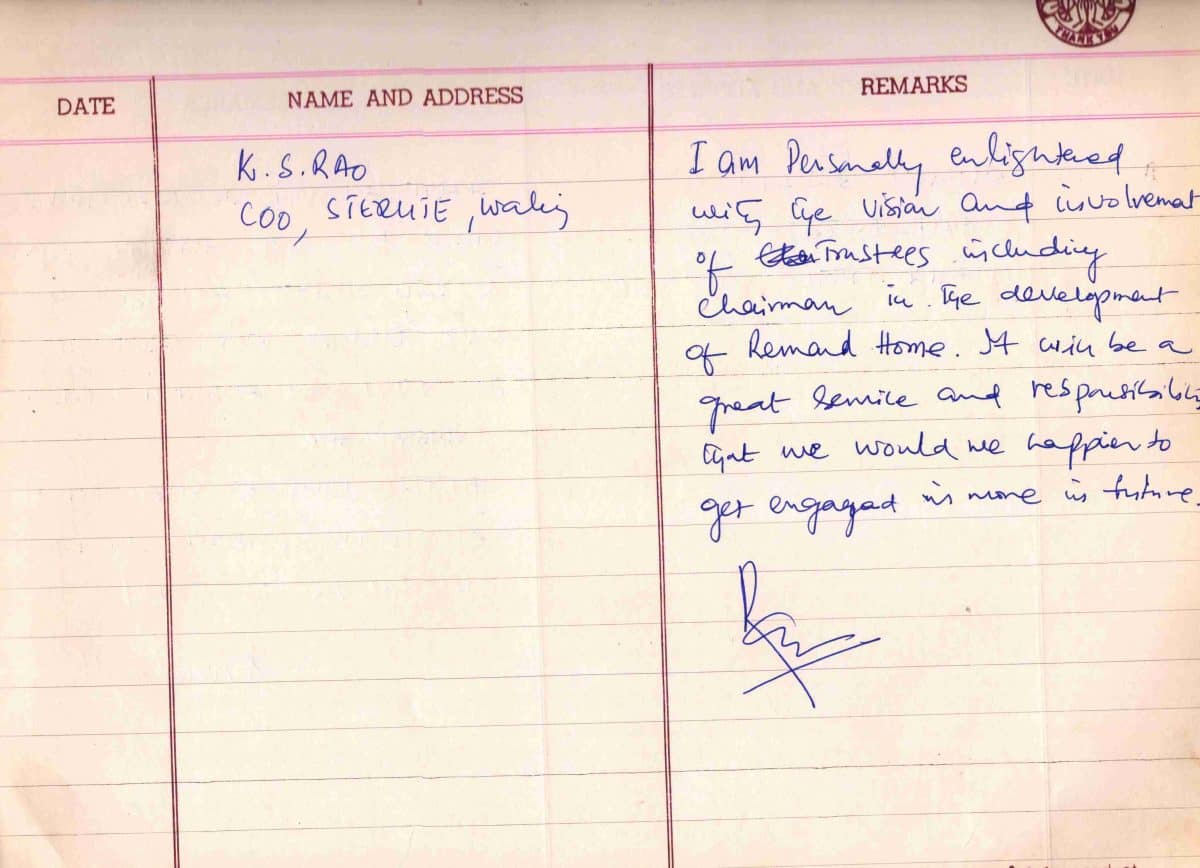 THANK YOU
DATE NAME AND ADDRESS REMARKS
K. S. RAO
COO, STERLITE,
I am Personally enlightened
with the vision and involvemat
of Trustees including
Chairman in the development
of Remand Home. It will be a
great Service and responsibility
that we would we happier to
get engaged in more in future.